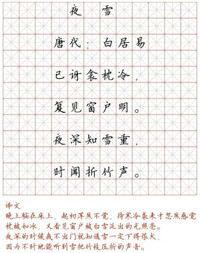 夜 雪
唐代：白居易
已讶衾枕冷，
复见窗户明。
夜深知雪重，
时闻折竹声。
译文
晚上躺在床上，起初浑然不觉，待寒冷袭来才忽然感觉
枕被如冰，又看见窗户被白雪泛出的光照亮。
夜深的时候我不出门就知道雪一定下得很大，
因为不时地能听到雪把竹枝压折的声音。